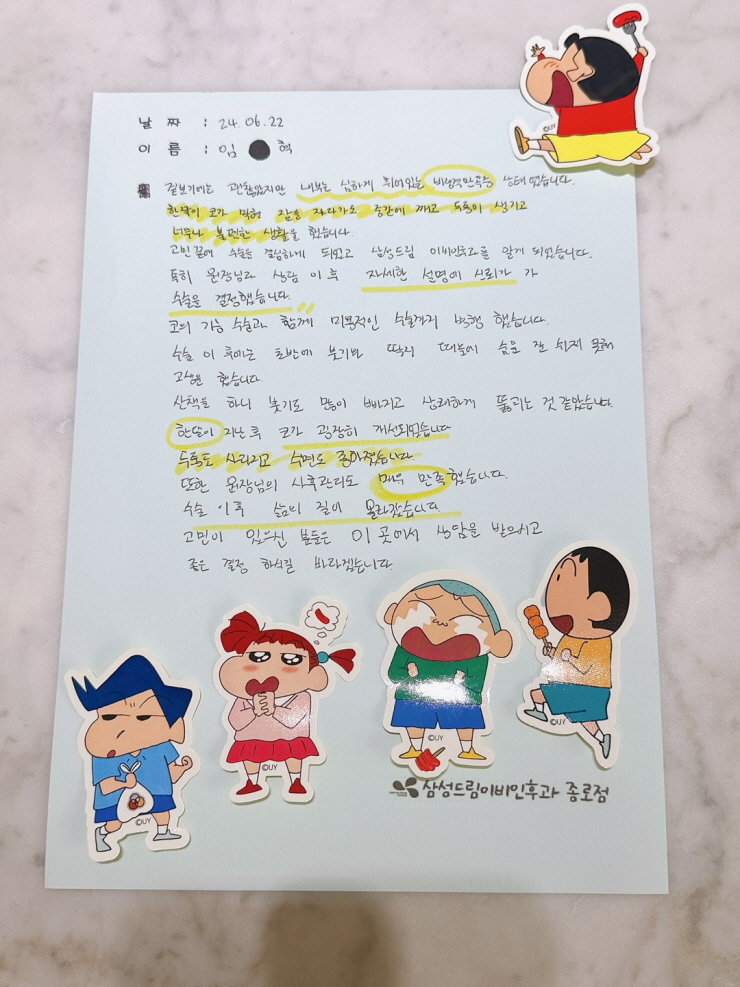 날 짜 : 24. 06. 22
이 름 : 임 혁
겉보기에는 괜찮았지만 내부는 심하게 휘어있는 비중격만곡증 상태였습니다.
한쪽이 코가 막혀 잠을 자다가도 중간에 깨고 두통이 생기고
너무나 불편한 생활을 했습니다.
고민 끝에 수술을 결심하게 되었고 삼성드림 이비인후과를 알게 되었습니다.
특히 원장님과 상담 이후 자세한 설명에 신뢰가 가
수술을 결정했습니다.
코의 기능 수술과 함께 미용적인 수술까지 병행 했습니다.
수술 이 후에는 초반에 붓기와 딱지 때문에 숨을 잘 쉬지 못해
고생을 했습니다
산책을 하니 붓기도 많이 빠지고 상쾌하게 뚫리는 것 같았습니다.
한달이 지난 후 코가 굉장히 개선되었습니다
두통도 사라지고 수면도 좋아졌습니다.
또한 원장님의 사후관리도 매우 만족했습니다.
수술 이후 삶의 질이 올라갔습니다.
고민이 있으신 분들은 이 곳에서 상담을 받으시고
좋은 결정 하시길 바라겠습니다
©UY
©UY
©UY
©UY
©UY
삼성드림이비인후과 종로점